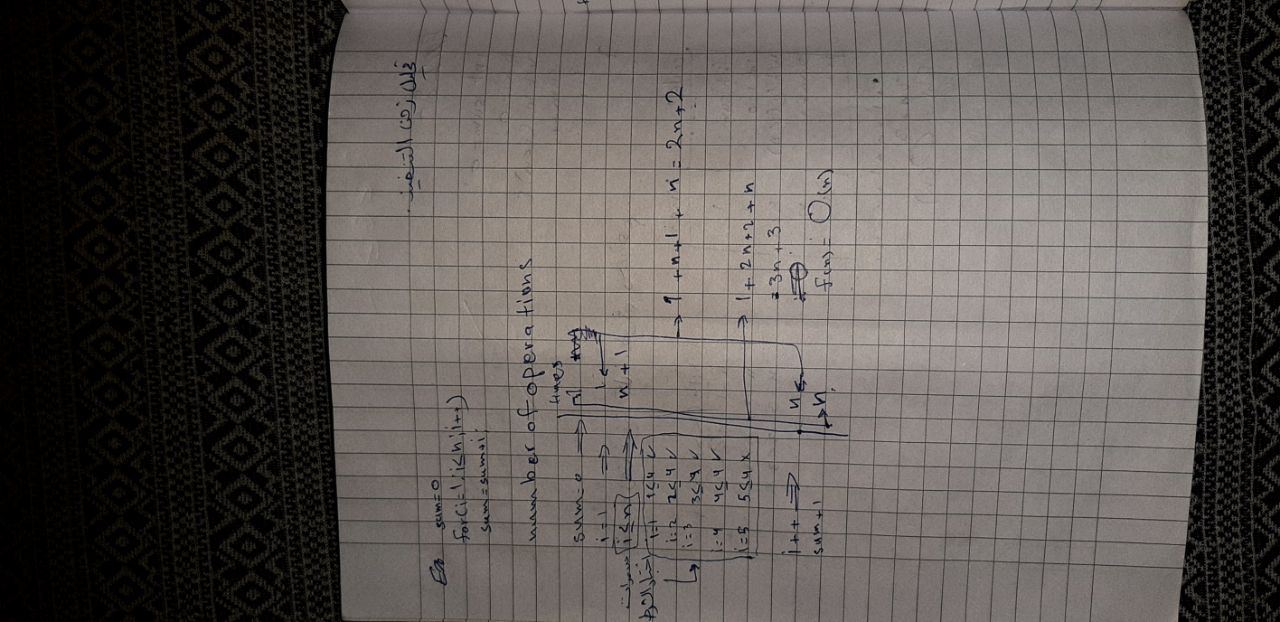 Ex sum=0
for(i=1, i≤n, i++)
sum=sum+i
number of operations
times
sum=0 ⇒ 1
i=1 ⇒ 1
i≤n ⇒ n+1
i=1 1≤4 ✓
i=2 2≤4 ✓
i=3 3≤4 ✓
i=4 4≤4 ✓
i=5 5≤4 ×
i++ ⇒ n
sum+1 → n
→ 1 + n+1 + n = 2n+2
→ 1 + 2n+2 + n
= 3n+3
f(n) = O(n)